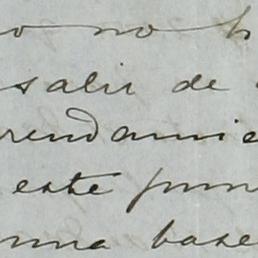 o no h
salir de
rendamie
este pun
una base